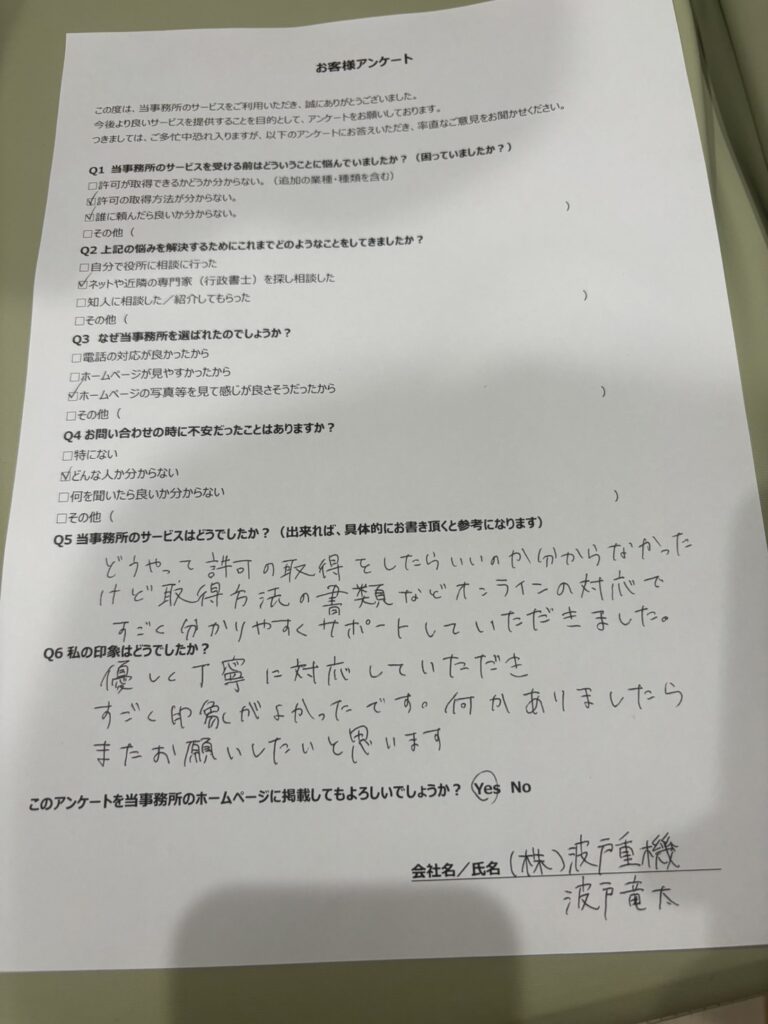 お客様アンケート
この度は、当事務所のサービスをご利用いただき、誠にありがとうございました。
今後より良いサービスを提供することを目的として、アンケートをお願いしております。
つきましては、ご多忙中恐れ入りますが、以下のアンケートにお答えいただき、率直なご意見をお聞かせください。
Q1 当事務所のサービスを受ける前はどういうことに悩んでいましたか?(困っていましたか?)
□許可が取得できるかどうか分からない。(追加の業種・種類を含む)
☑許可の取得方法が分からない。
☑誰に頼んだら良いか分からない。
□その他( )
Q2 上記の悩みを解決するためにこれまでどのようなことをしてきましたか?
□自分で役所に相談に行った
☑ネットや近隣の専門家(行政書士)を探し相談した
□知人に相談した/紹介してもらった
□その他( )
Q3 なぜ当事務所を選ばれたのでしょうか?
□電話の対応が良かったから
□ホームページが見やすかったから
☑ホームページの写真等を見て感じが良さそうだったから
□その他( )
Q4 お問い合わせの時に不安だったことはありますか?
□特にない
☑どんな人か分からない
□何を聞いたら良いか分からない
□その他( )
Q5 当事務所のサービスはどうでしたか?(出来れば、具体的にお書き頂くと参考になります)
どうやって許可の取得をしたらいいのか分からなかった
けど取得方法の書類などオンラインの対応で
すごく分かりやすくサポートしていただきました。
Q6 私の印象はどうでしたか?
優しく丁寧に対応していただき
すごく印象がよかったです。何かありましたら
またお願いしたいと思います
このアンケートを当事務所のホームページに掲載してもよろしいでしょうか? Yes No
会社名/氏名 (株)波戸重機
波戸竜太